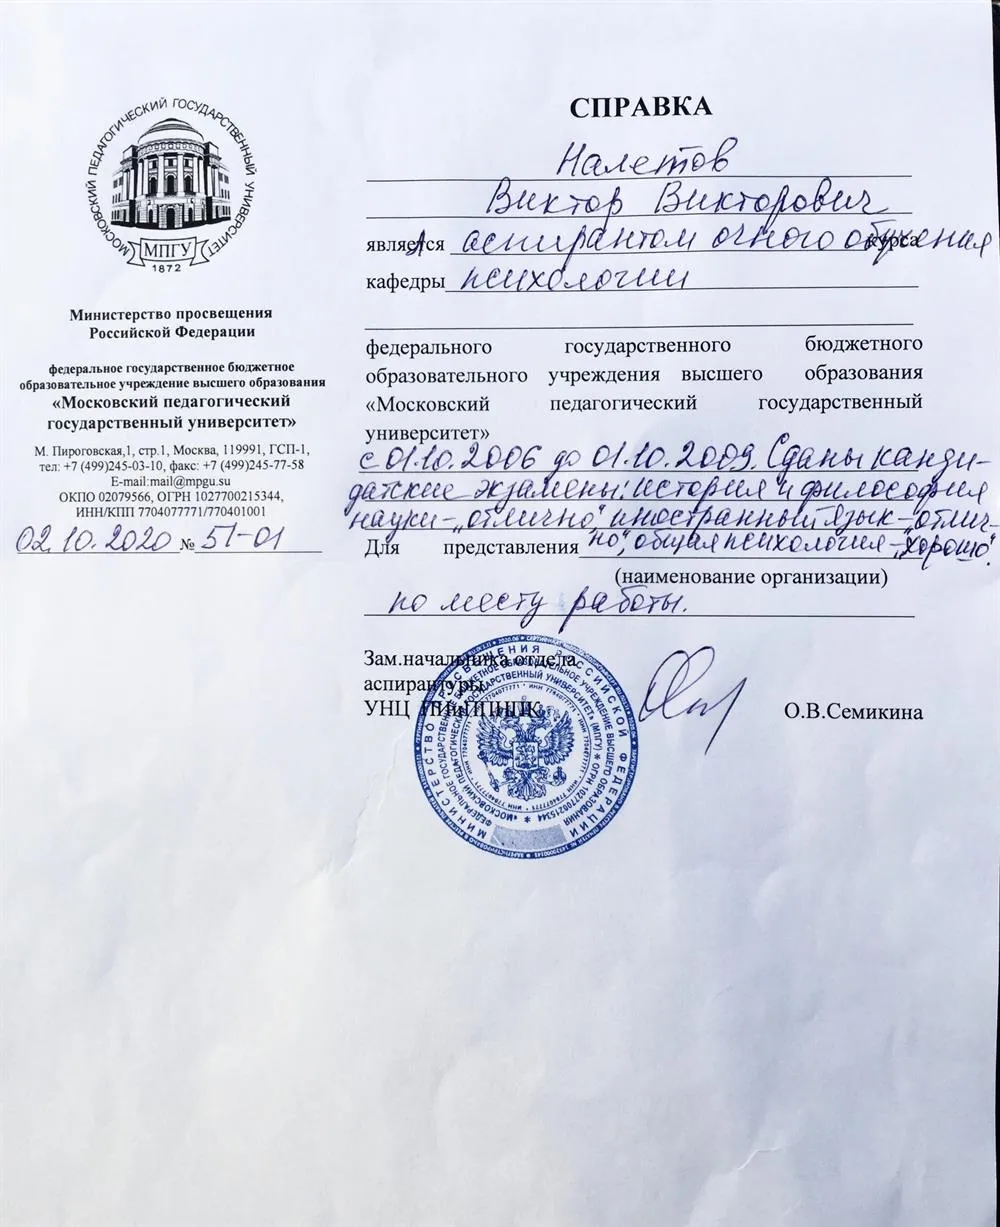 МОСКОВСКИЙ ПЕДАГОГИЧЕСКИЙ ГОСУДАРСТВЕННЫЙ УНИВЕРСИТЕТ
МПГУ
1872
Министерство просвещения
Российской Федерации
федеральное государственное бюджетное
образовательное учреждение высшего образования
«Московский педагогический
государственный университет»
М. Пироговская,1, стр.1, Москва, 119991, ГСП-1,
тел: +7 (499)245-03-10, факс: +7 (499)245-77-58
E-mail:mail@mpgu.su
ОКПО 02079566, ОГРН 1027700215344,
ИНН/КПП 7704077771/770401001
02.10.2020 № 51-01
СПРАВКА
Налетов
Виктор Викторович
является аспирантом очного обучения курса
кафедры психологии
федерального государственного бюджетного
образовательного учреждения высшего образования
«Московский педагогический государственный
университет»
с 01.10.2006 до 01.10.2009. Сданы канди-
датские экзамены: история и философия
науки - „отлично" иностранный язык - „отлич-
Для представления но", общая психология - „хорошо".
(наименование организации)
по месту работы.
Зам.начальника отдела
аспирантуры
УНЦ
О.В.Семикина
МИНИСТЕРСТВО ПРОСВЕЩЕНИЯ РОССИЙСКОЙ ФЕДЕРАЦИИ
ФЕДЕРАЛЬНОЕ ГОСУДАРСТВЕННОЕ БЮДЖЕТНОЕ ОБРАЗОВАТЕЛЬНОЕ УЧРЕЖДЕНИЕ ВЫСШЕГО ОБРАЗОВАНИЯ
«МОСКОВСКИЙ ПЕДАГОГИЧЕСКИЙ ГОСУДАРСТВЕННЫЙ УНИВЕРСИТЕТ» (МПГУ) * ОГРН 1027700215344 *
ИНН 7704077771